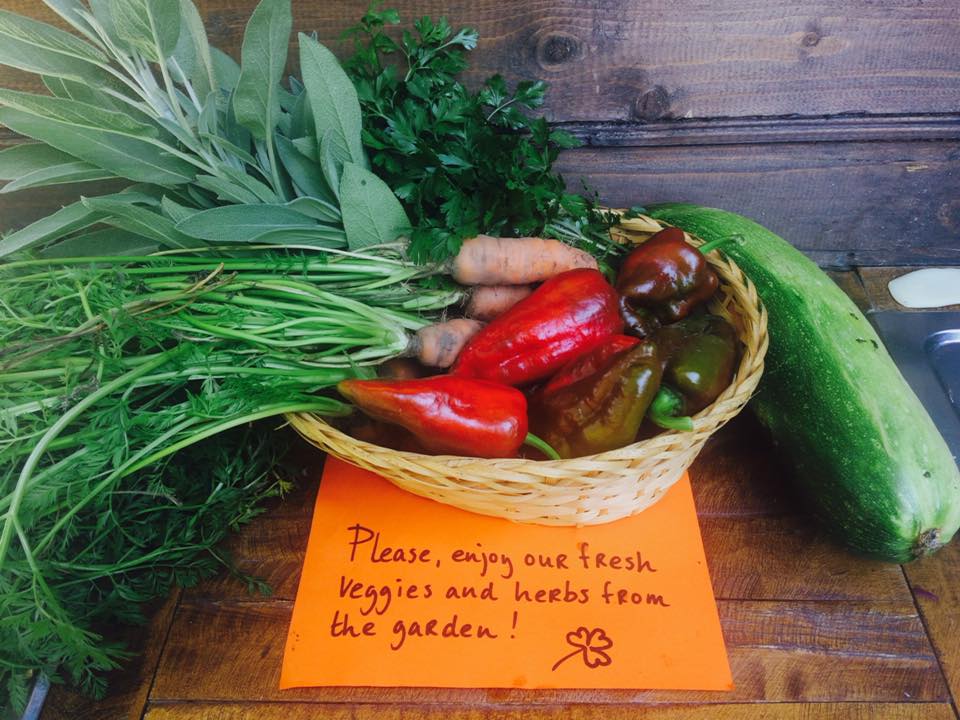 Please, enjoy our fresh
veggies and herbs from
the garden!